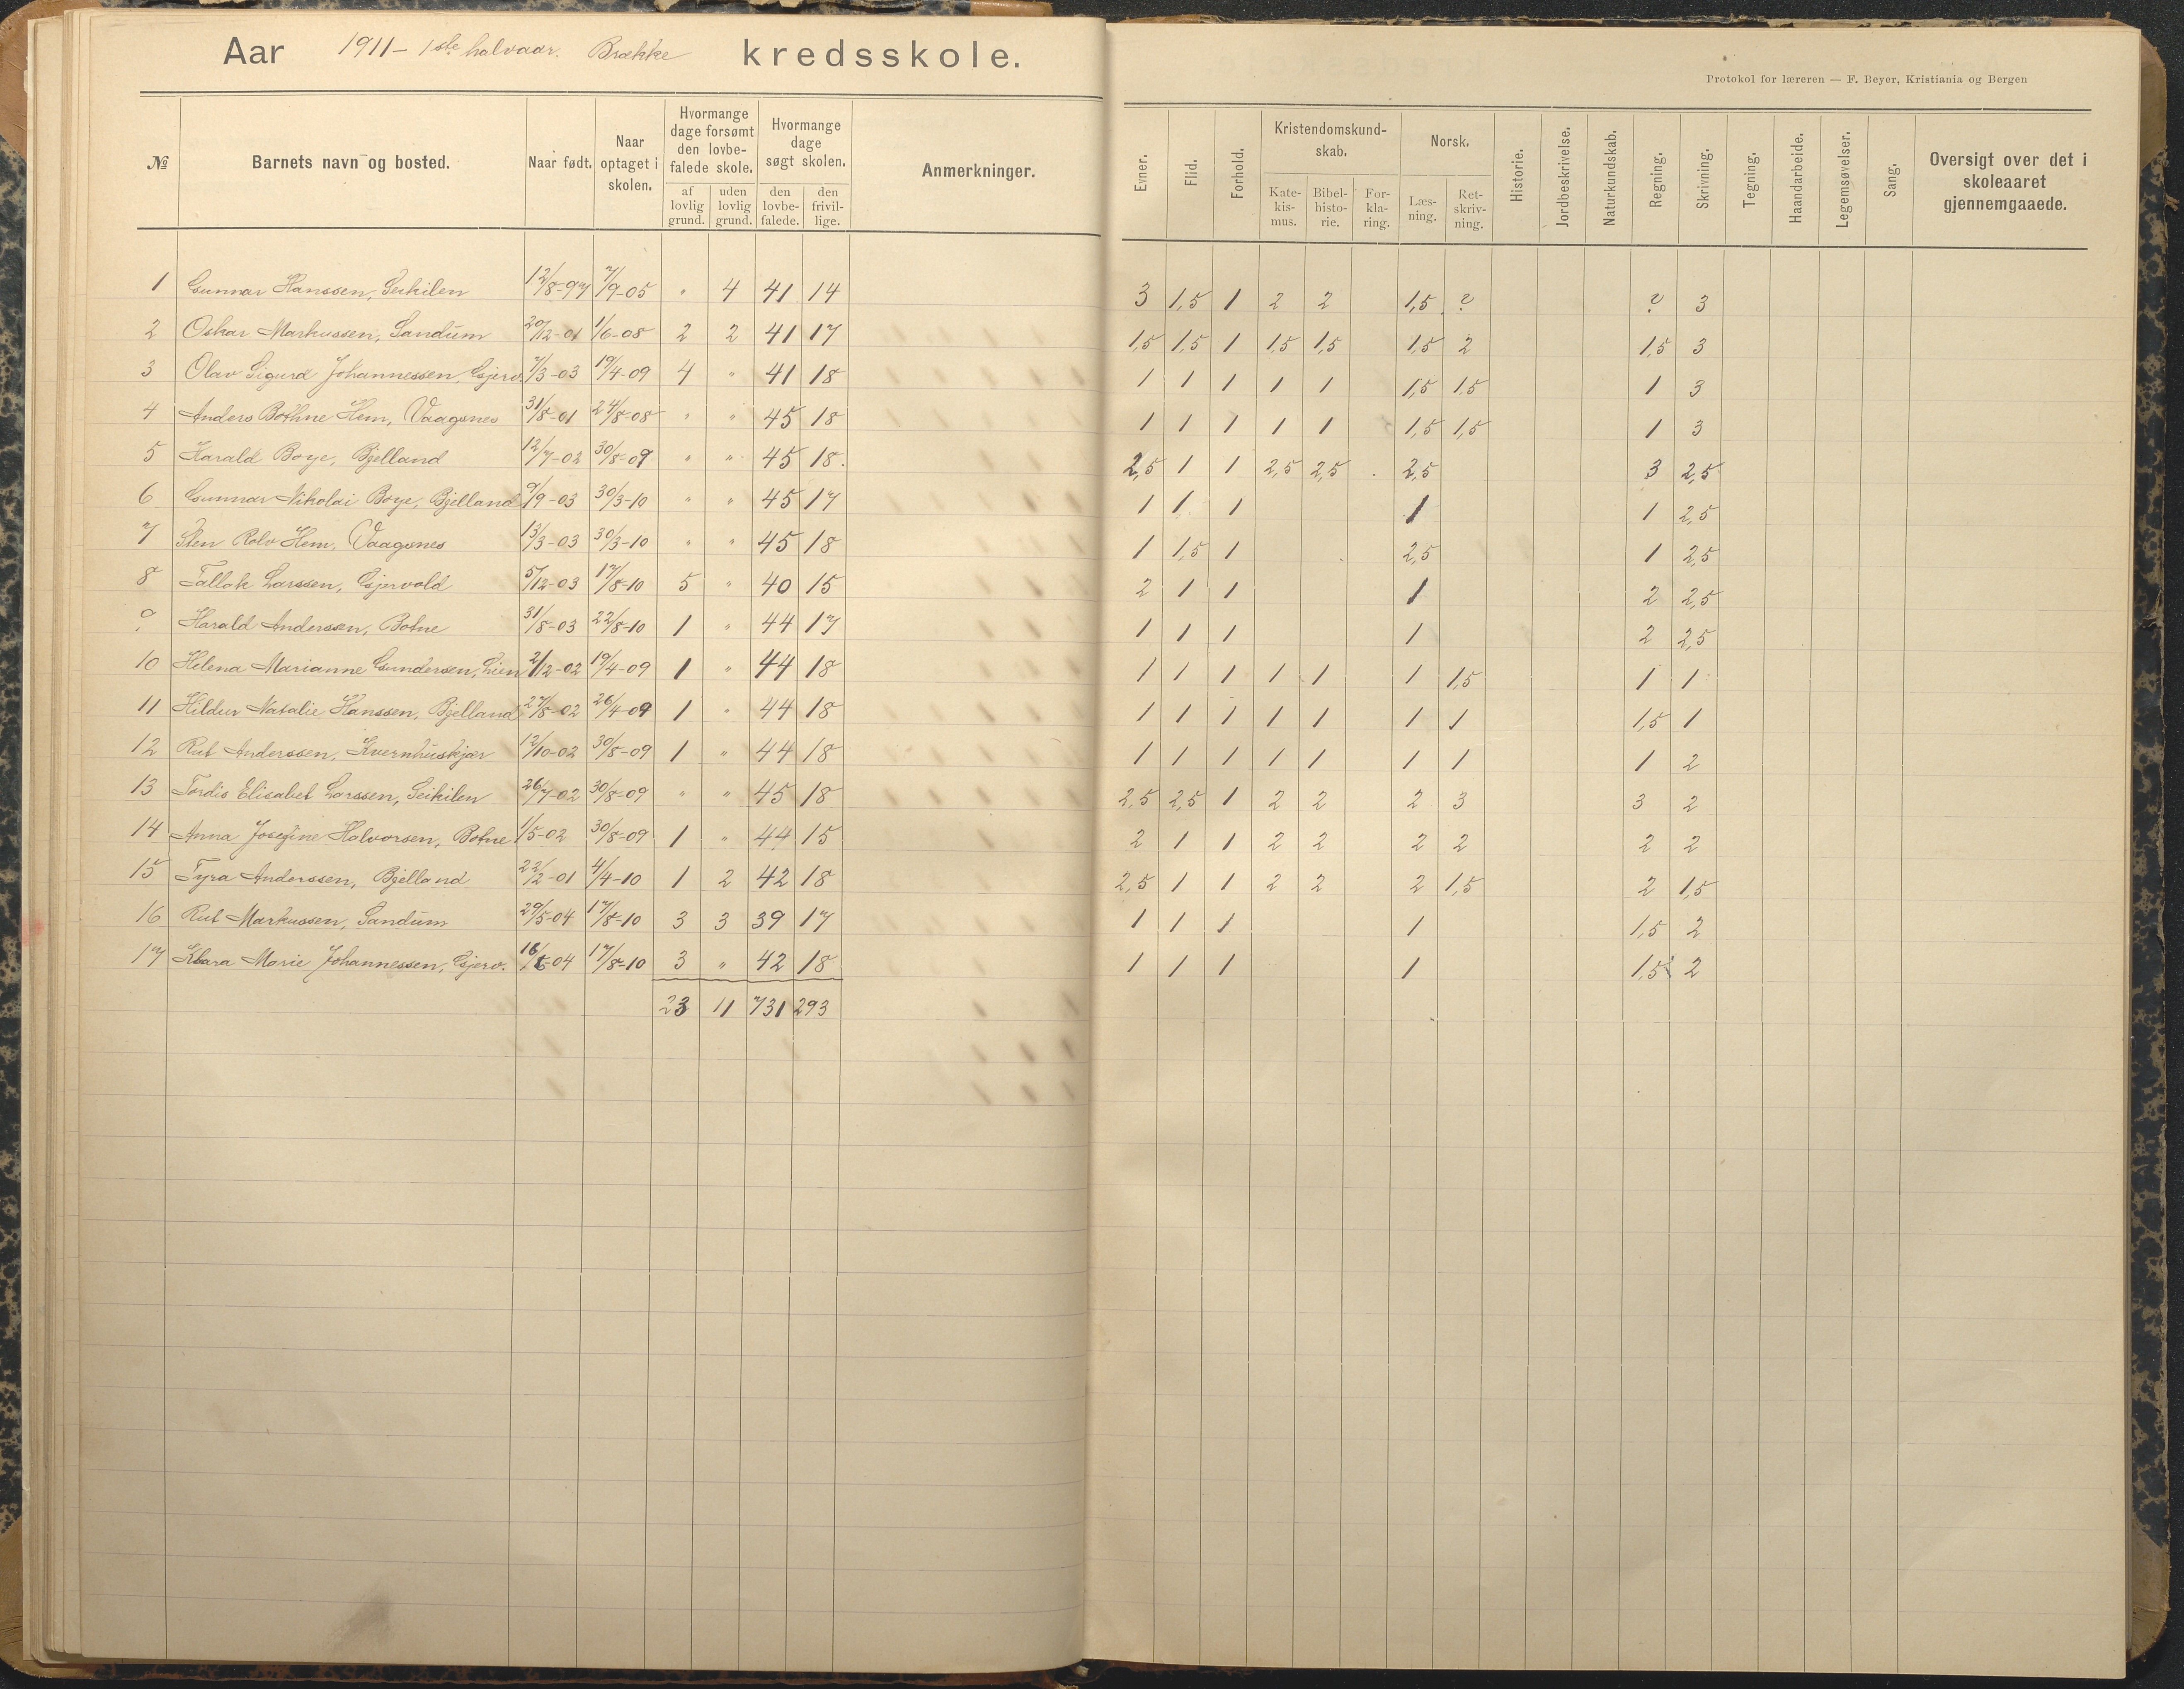 Aar 1911 - 1ste halvaar. Brække kredsskole.
Protokol for læreren — F. Beyer, Kristiania og Bergen
№ Barnets navn og bosted. Naar født. Naar optaget i skolen. Hvormange dage forsømt den lovbefalede skole. af lovlig grund. uden lovlig grund. Hvormange dage søgt skolen. den lovbefalede. den frivillige. Anmerkninger. Evner. Flid. Forhold. Kristendomskundskab. Katekismus. Bibelhistorie. Forklaring. Norsk. Læsning. Retskrivning. Historie. Jordbeskrivelse. Naturkundskab. Regning. Skrivning. Tegning. Haandarbeide. Legemsøvelser. Sang. Oversigt over det i skoleaaret gjennemgaaede.
1 Gunnar Hanssen, Seikilen 12/8-97 7/9-05 " 4 41 14 3 1,5 1 2 2 1,5 ? ? 3
2 Oskar Markussen, Sandum 20/12-01 1/6-08 2 2 41 17 1,5 1,5 1 1,5 1,5 1,5 2 1,5 3
3 Olav Sigurd Johannessen, Gjerv. 7/3-03 19/4-09 4 " 41 18 1 1 1 1 1 1,5 1,5 1 3
4 Anders Bothne Hem, Vaagsnes 31/8-01 24/8-08 " " 45 18 1 1 1 1 1 1,5 1,5 1 3
5 Harald Boye, Bjelland 12/7-02 30/8-09 " " 45 18. 2,5 1 1 2,5 2,5 2,5 3 2,5
6 Gunnar Nikolai Boye, Bjelland 9/9-03 30/3-10 " " 45 17 1 1 1 1 1 2,5
7 Sten Rolv Hem, Vaagsnes 13/3-03 30/3-10 " " 45 18 1 1,5 1 2,5 1 2,5
8 Tallak Larssen, Gjervold 5/12-03 17/8-10 5 " 40 15 2 1 1 1 2 2,5
9 Harald Anderssen, Botne 31/8-03 22/8-10 1 " 44 17 1 1 1 1 2 2,5
10 Helena Marianne Gundersen, Lien 2/12-02 19/4-09 1 " 44 18 1 1 1 1 1 1 1,5 1 1
11 Hildur Natalie Hanssen, Bjelland 27/8-02 26/4-09 1 " 44 18 1 1 1 1 1 1 1 1,5 1
12 Rut Anderssen, Kvernhuskjær 12/10-02 30/8-09 1 " 44 18 1 1 1 1 1 1 1 1 2
13 Tordis Elisabet Larssen, Seikilen 26/7-02 30/8-09 " " 45 18 2,5 2,5 1 2 2 2 3 3 2
14 Anna Josefine Halvorsen, Botne 1/5-02 30/8-09 1 " 44 15 2 1 1 2 2 2 2 2 2
15 Tyra Anderssen, Bjelland 22/2-01 4/4-10 1 2 42 18 2,5 1 1 2 2 2 1,5 2 1,5
16 Rut Markussen, Sandum 29/5-04 17/8-10 3 3 39 17 1 1 1 1 1,5 2
17 Klara Marie Johannessen, Gjerv. 04 17/8-10 3 " 42 18 1 1 1 1 1,5 2
23 11 731 293